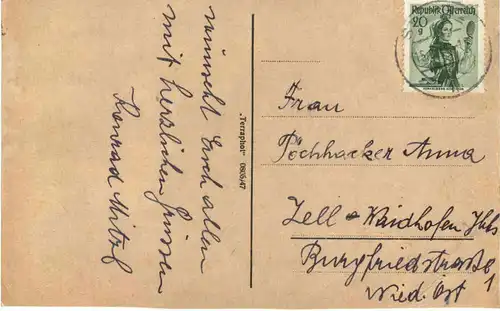 wünscht Euch allen
mit herzlichen Grüssen
Konrad
"Terraphot" 0805/47
Republik Österreich
20
g
Frau
Pöchhacker Anna
Zell - Waidhofen Ybbs
Burgfriedstraße 1
Nied. Öst